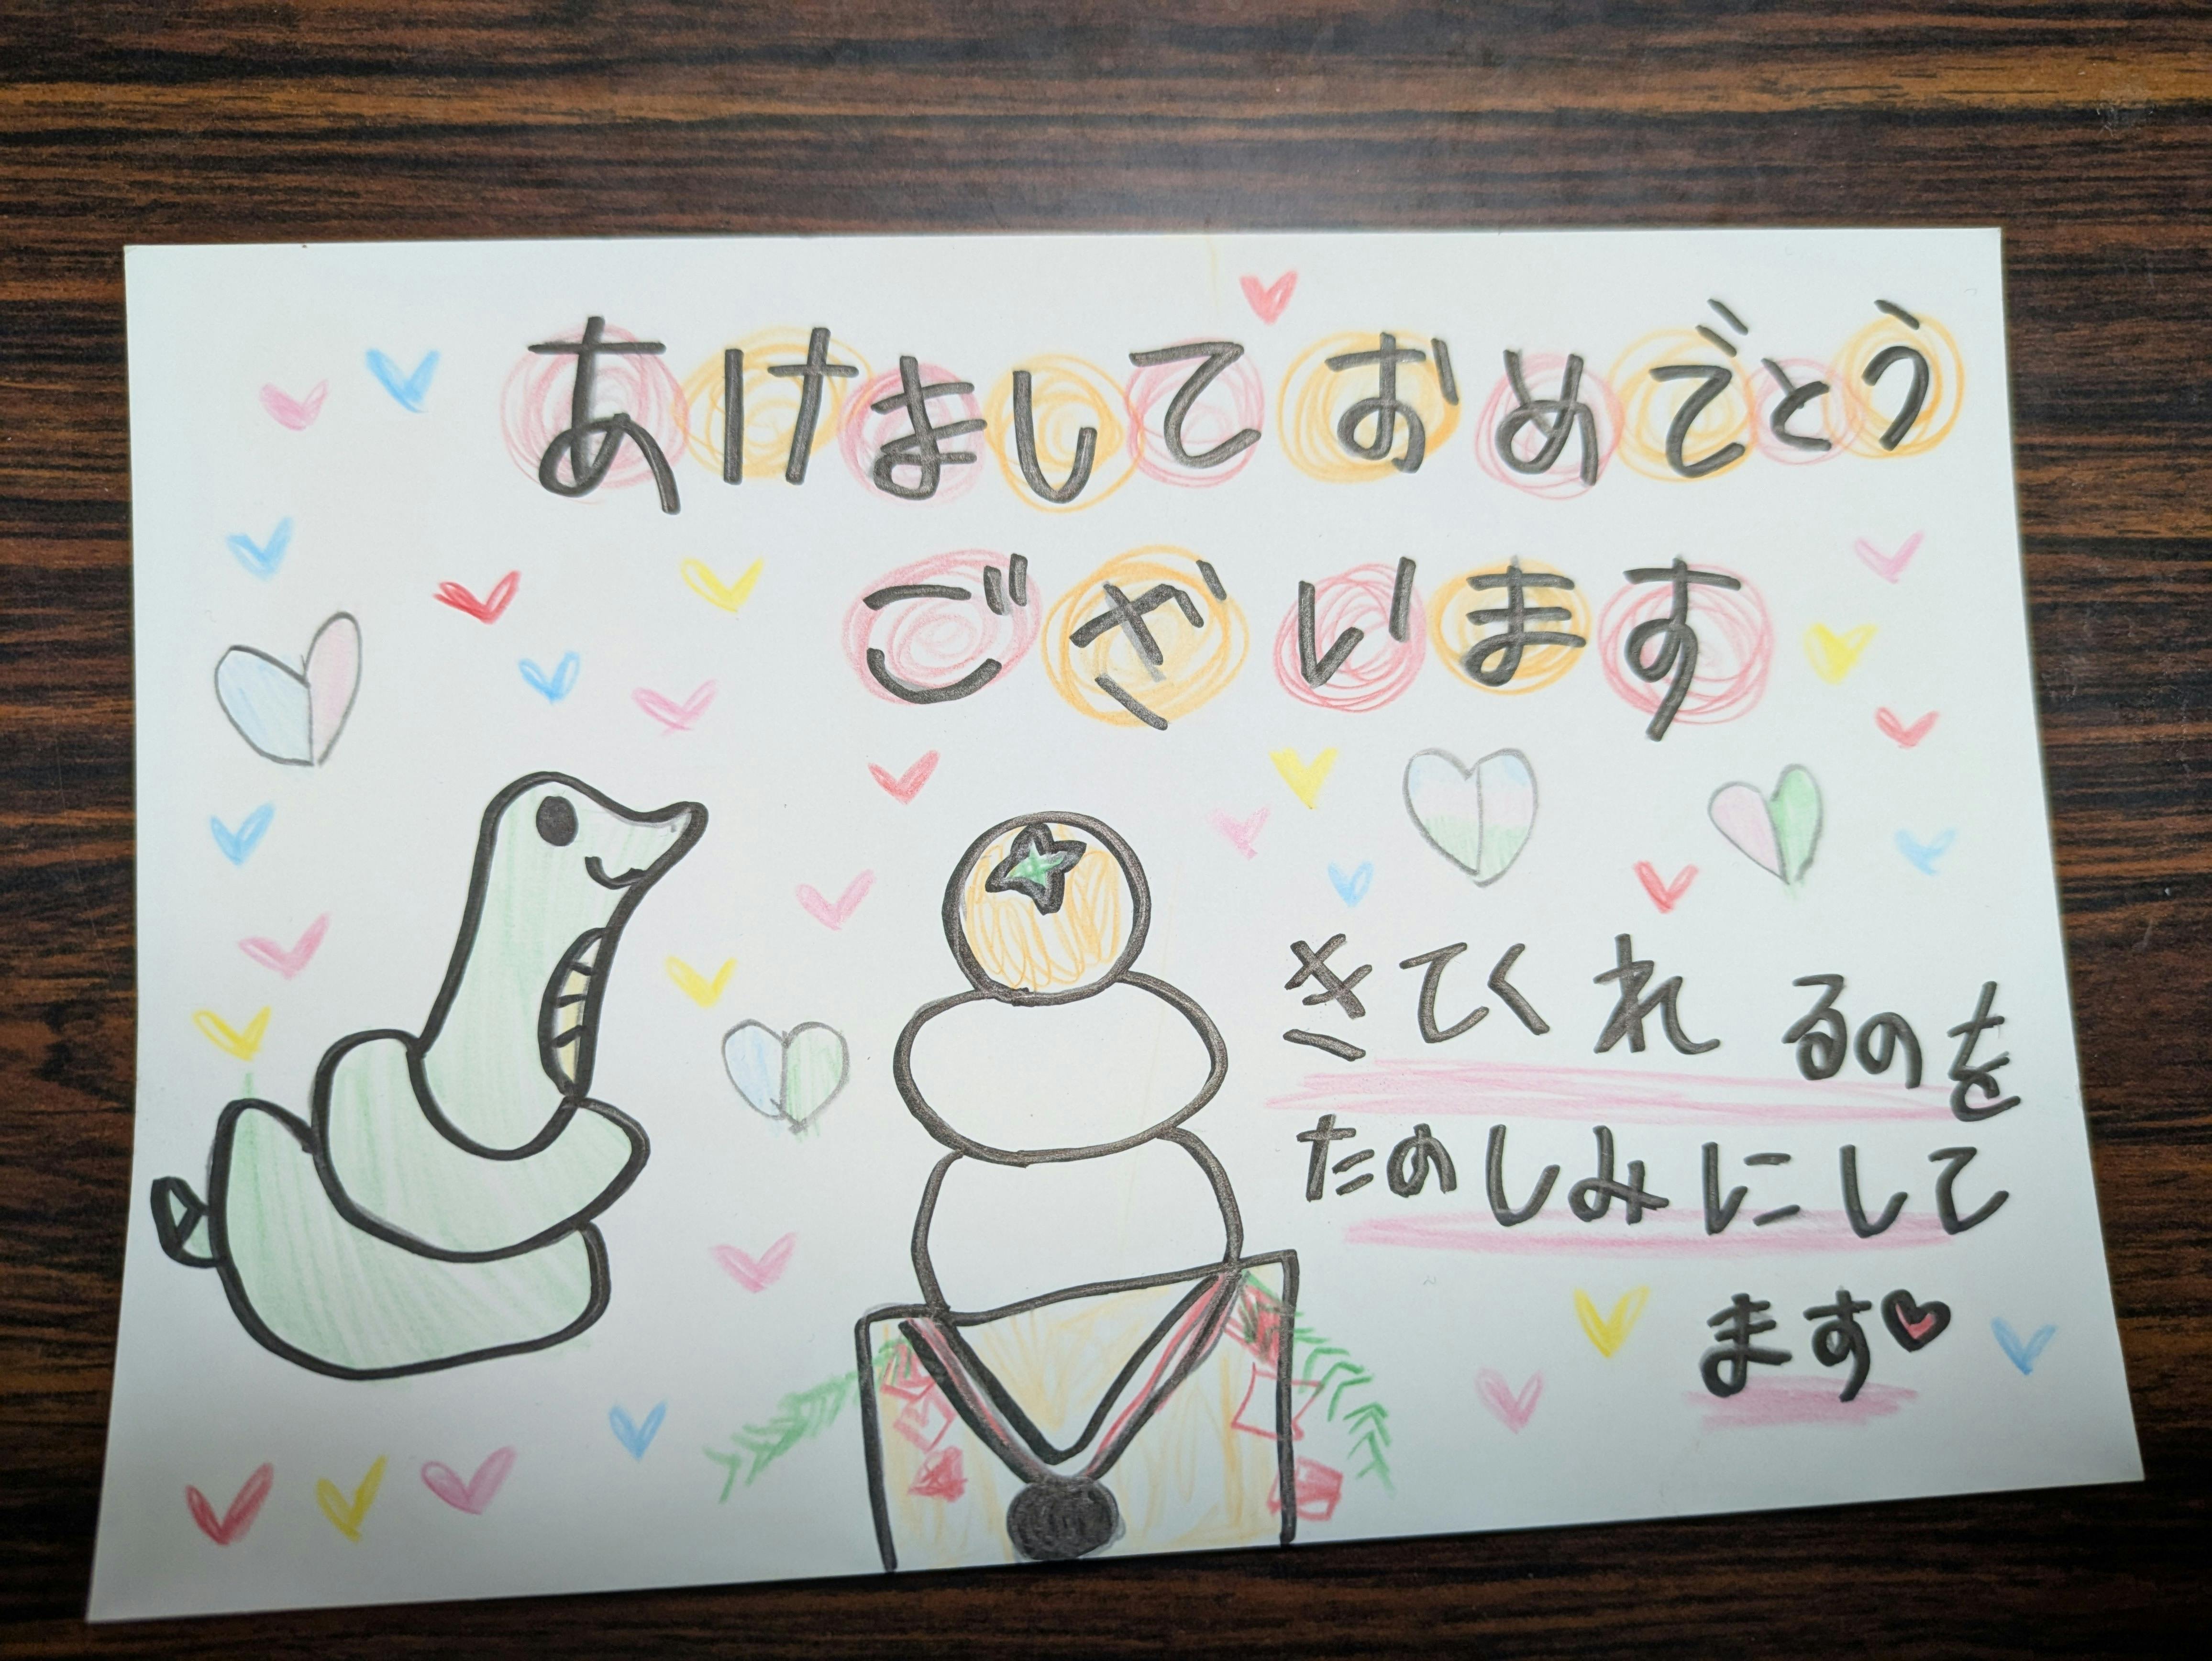 あけましておめでとう
ございます
きてくれるのを
たのしみにして
ます♥